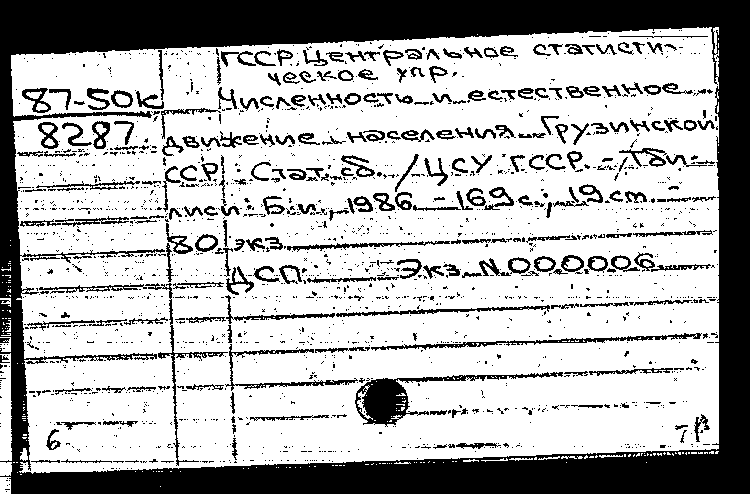 ГССР. Центральное статисти-
ческое упр.
87-50к Численность и естественное
8287. движение населения Грузинской
ССР: Стат. сб. / ЦСУ ГССР. - Тби-
лиси: Б.и., 1986. - 169 с.; 19 см. -
80 экз.
ДСП Экз. N000006
6